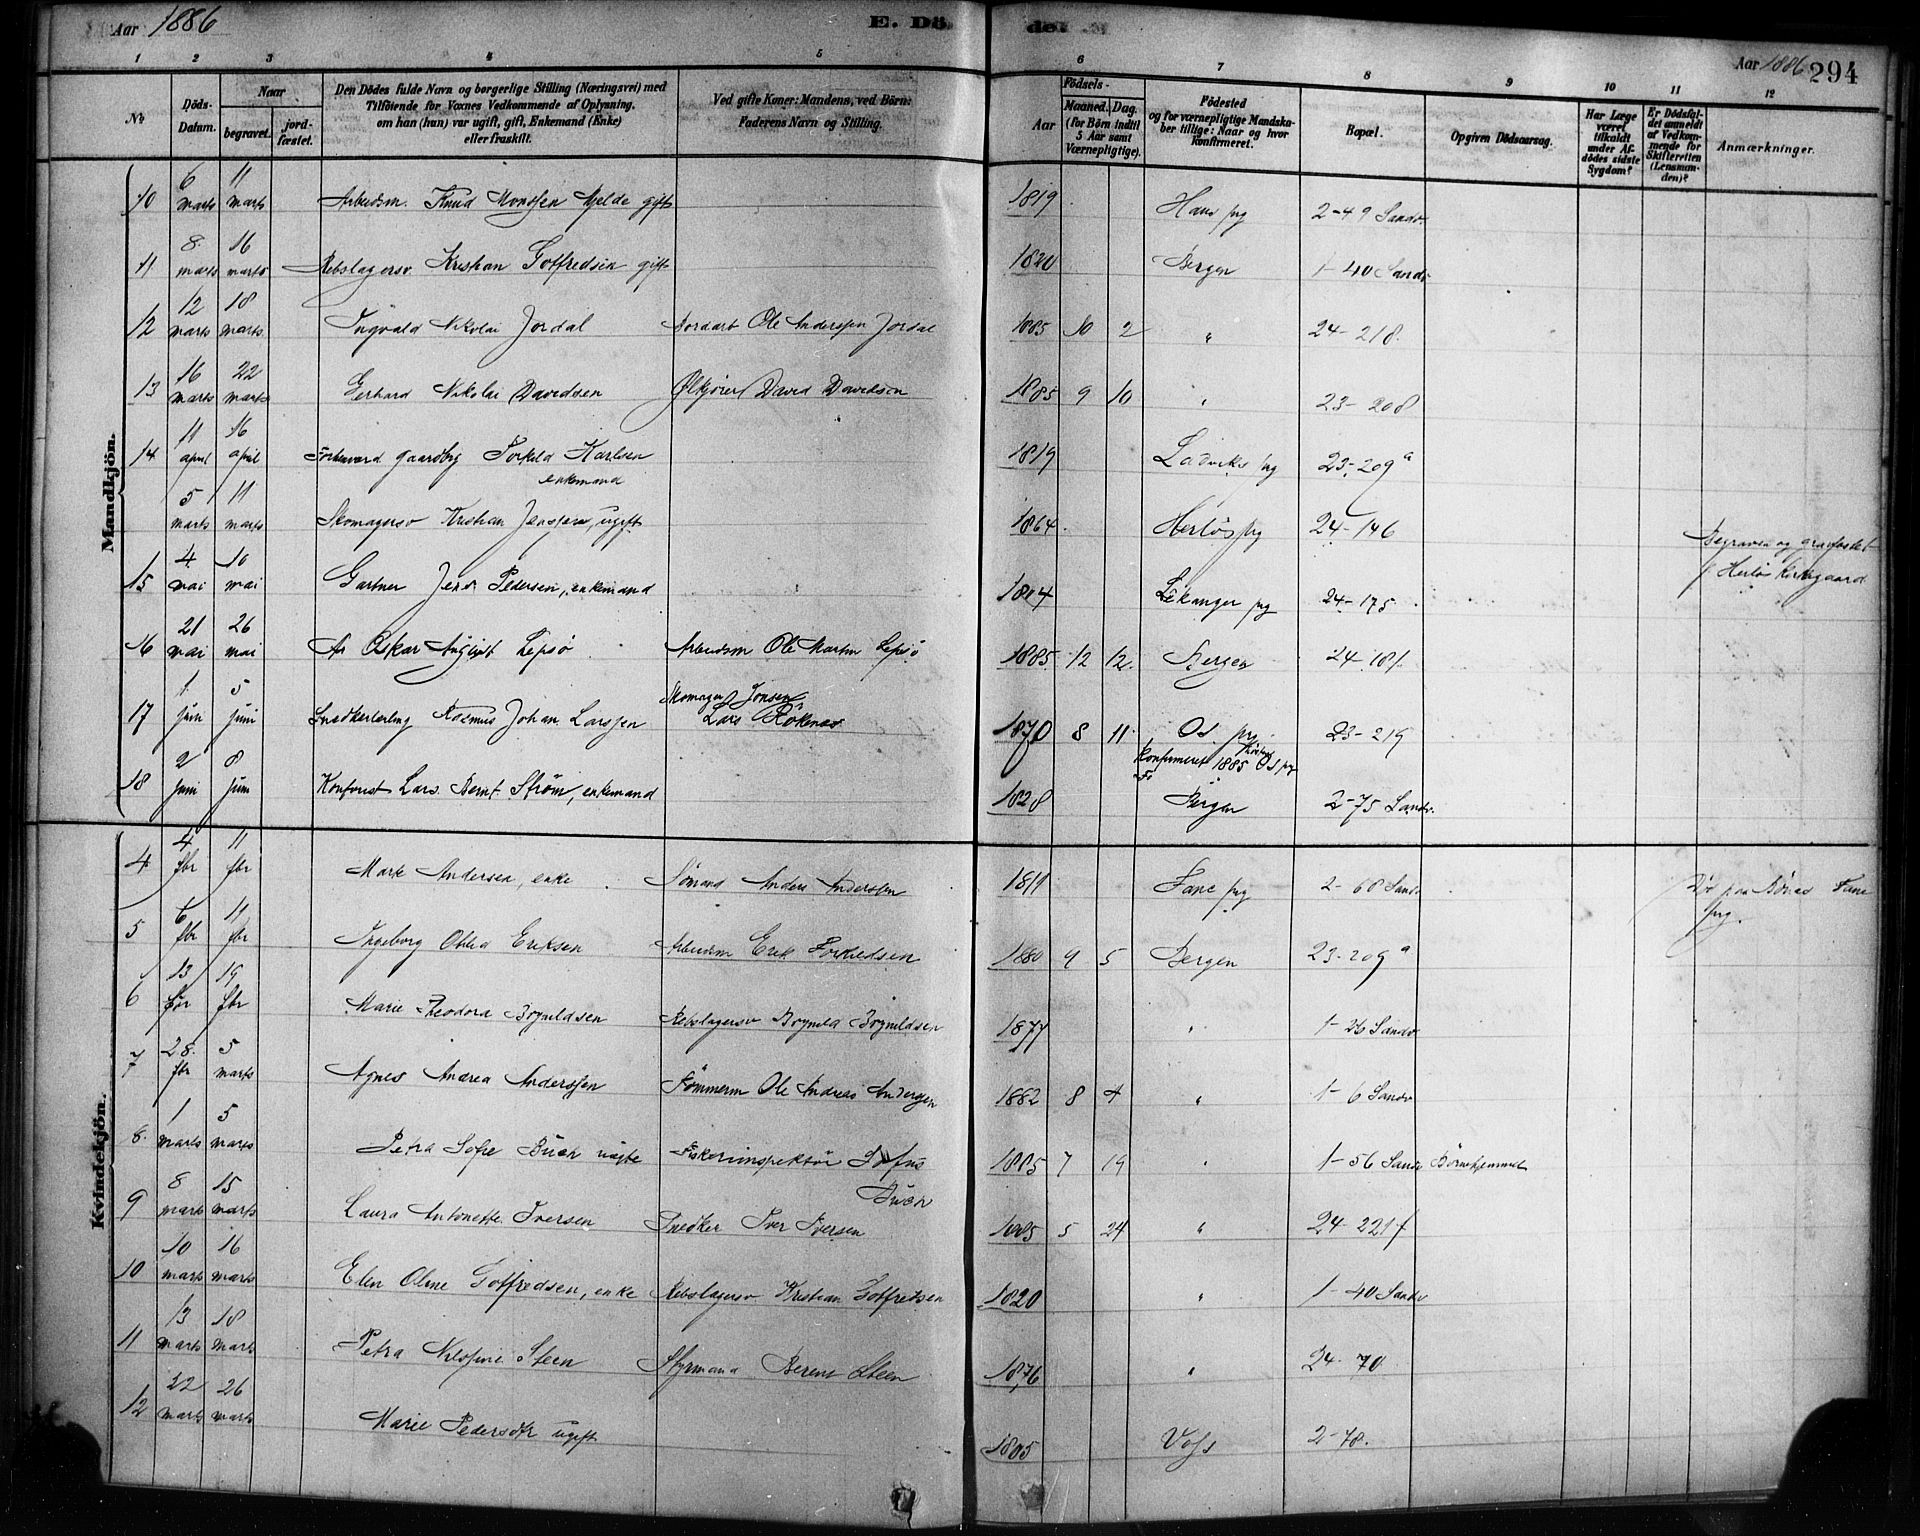 Aar 1886
E. Dö
de
Aar 1886
294
1 2 3 4 5 6 7 8 9 10 11 12
No
Döds-Datum.
Naar
begravet.
jord-fæstet.
Den Dödes fulde Navn og borgerlige Stilling (Næringsvei) med
Tilföiende for Voxnes Vedkommende af Oplysning,
om han (hun) var ugift, gift, Enkemand (Enke)
eller fraskilt.
Ved gifte Koner: Mandens, ved Börn:
Faderens Navn og Stilling.
Födsels-
Aar
Maaned. Dag.
(for Börn indtil
5 Aar samt
Værnepligtige).
Födested
og for værnepligtige Mandska-
ber tillige: Naar og hvor
konfirmeret.
Bopæl.
Opgiven Dödsaarsag.
Har Læge
været
tilkaldt
under Af-
dödes sidste
Sygdom?
Er Dödsfal-
det anmeldt
af Vedkom-
mende for
Skifteretten
(Lensman-
den)?
Anmærkninger.
Mandkjön.
10 6 marts 11 marts Arbeidsm. Knud Monssen Mjelde gift 1819 Haus pg 2-49 Sandv
11 8 marts 16 marts Rebslagersv Kristian Gotfredsen gift 1820 Bergen 1-40 Sandv
12 12 marts 18 marts Ingvald Nikolai Jordal Jordarb Ole Anderssen Jordal 1885 10 2 " 24-218.
13 16 marts 22 marts Gerhard Nikolai Davidsen Ølkjører David Davidsen 1885 9 10 " 23-208
14 11 april 16 april Forhenværd gaardbrg Torkild Karlsen 1819 Ladviks pg 23-209a
enkemand
5 marts 11 marts Skomagersv Kristian Jenssen, ugift 1864 Herlös pg 24-146 Begraven og gravfæstet
p Herlö Kirkegaard
15 4 mai 10 mai Gartner Jens Pedersen, enkemand 1804 Lekanger pg 24-175
16 21 mai 26 mai Oskar Lepsö Arbeidsm Ole Martin Lepsö 1885 12 12 Bergen 24-181
17 1 juni 5 juni Snedkerlærling Rasmus Johan Larssen Skomager Jonsen
Lars Rökenæs 1870 8 11 Os pg 23-219
konfirmeret 1885 Os pg
18 2 juni 8 juni Lars Bernt Ström, enkemand 1828 Bergen 2-75 Sandv.
Kvindekjön.
4 4 fbr 11 fbr Marte Andersen, enke Sömand Anders Anderssen 1811 Fane pg 2-68 Sandv Fane
pg.
5 6 fbr 11 fbr Ingeborg Eriksen Arbeidsm Erik Torkildsen 1880 9 5 Bergen 23-209a
6 13 fbr 19 fbr Marie Theodora Bognildsen Rebslagersv Bognild Bognildsen 1877 " 1-26 Sandv
7 28 fbr 5 marts Agnes Andrea Anderssen Tömmerm Ole Andreas Andersen 1882 8 4 " 1-6 Sandv
8. 1 marts 5 marts Petra Sofie Buch Fiskeriinspektör
Buch 1885 7 19 " 1-56 Sandv
9 8 marts 15 marts Laura Antonette Iversen Snedker Iver Iversen 1885 5 24 " 24-221f
10 10 marts 16 marts Elen Oline Gotfredsen, enke Rebslagersv Kristian Gotfredsen 1820 " 1-40 Sandv
11 13 marts 18 marts Petra Nilsine Steen Styrmand Berent Steen 1876 " 24-70
12 22 marts 26 marts Marie Pedersdtr ugift 1805 Voss 2-78.